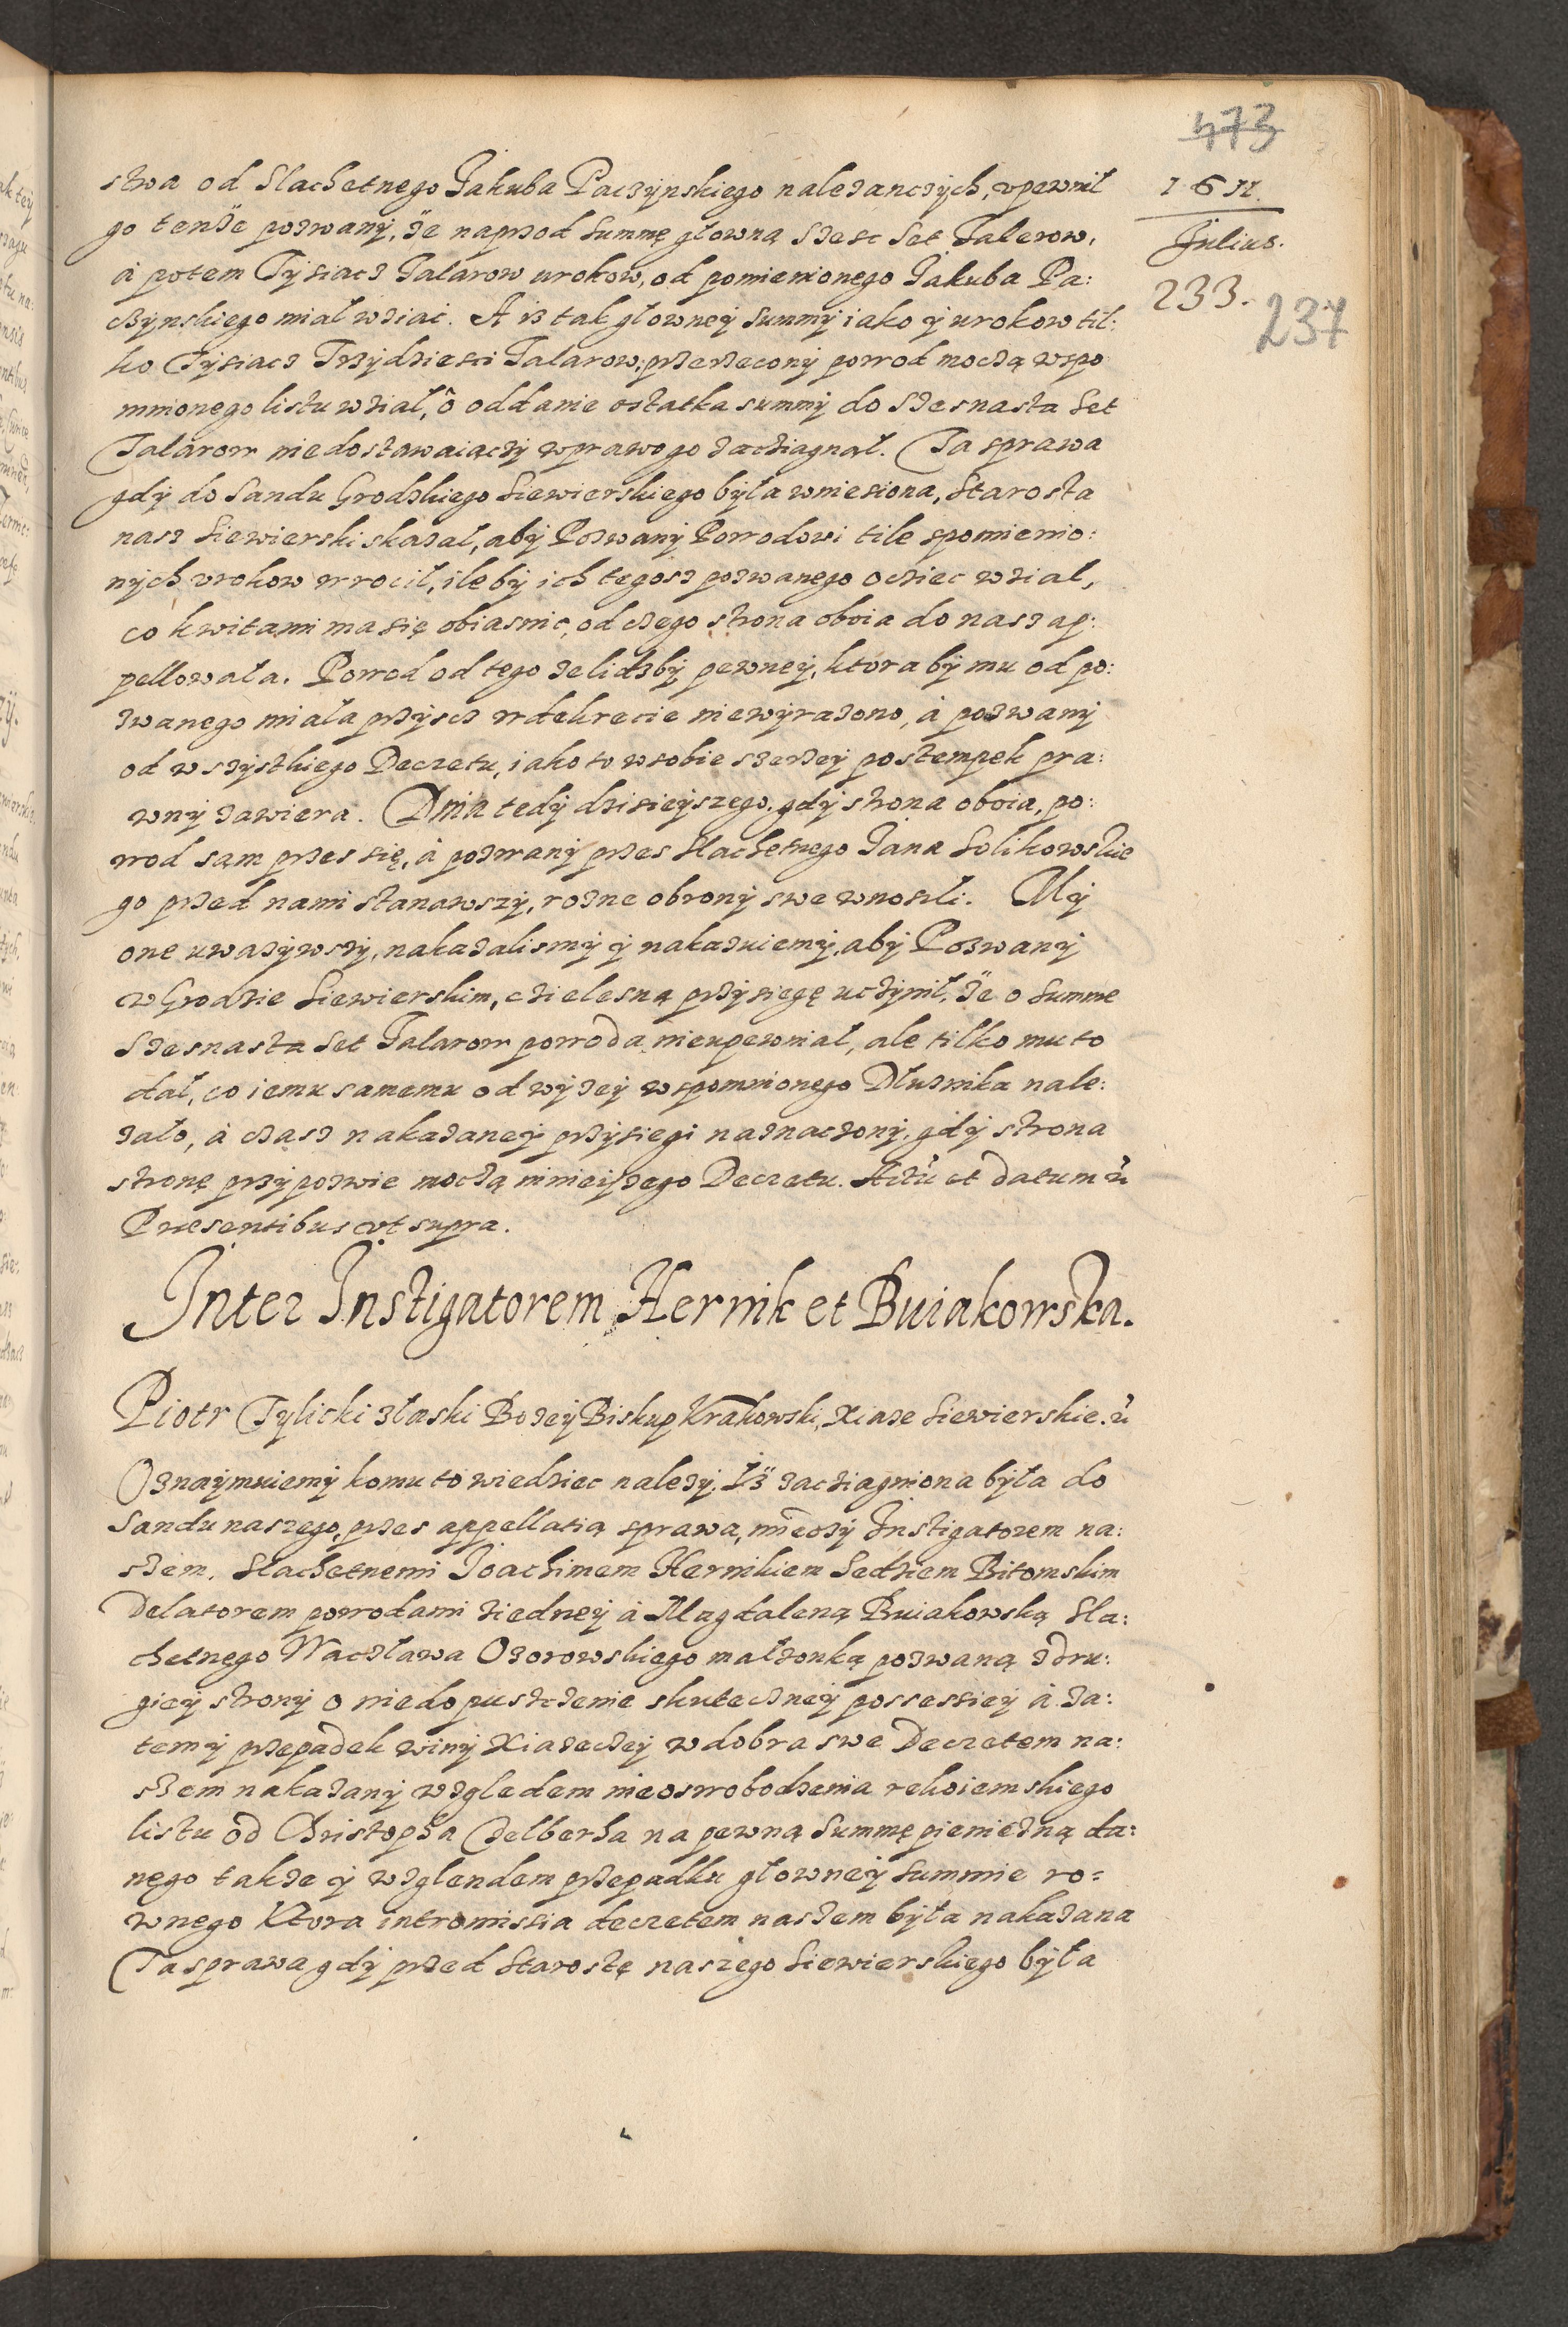 473
1611.
Julius.
233.
237
stwa od Slachetnego Jakuba Paczynskiego nalezanczych, vpewnił
go tenże pozwany, że naprzod Summę głowną szesc set Talerow,
à potem Tysiacz Talarow urokow, od pomienionego Jakuba Pa:
czynskiego miał wziać. A iż tak głowney Summy iako y urokow til:
ko Tysiacz Trzydziesci Talarow, przerzeczony powod moczą wspo
mnionego listu wział, ô oddanie ostatka summy do szesnasta set
Talarow niedostawaiączy wprawo go zacziagnął. Ta sprawa
gdy do Sandu Grodzkiego Siewierskiego była wniesiona, Starosta
nasz Siewierski skazał, aby Pozwany Powodowi tile spomienio:
nych vrokow wrocił, ileby ich tegosz pozwanego ocziec wział,
co kwitami ma się obiasnic, od czego strona oboia do nasz ap:
pellowała. Powod od tego że lidzby pewney, ktora by mu od po:
zwanego miała przyscz w dekrecie niewyrazono, à pozwany
od wszystkiego Decretu, iako to w sobie szerzey postempek pra:
wny zawiera. Dnia tedy dzisieyszego, gdy strona oboia, po:
wod sąm przes się, à pozwany przes Slachetnego Jana Solikowskie
go przed nami stanawszy, rozne obrony swe wnosili. My
one uwazywszy, nakazalismy y nakazuiemy, aby Pozwany
w Grodzie Siewierskim, czielesną przysięgę uczynił, że o Summe
Szesnasta Set Talarow powoda nieupewniał, ale tilko mu to
dał, co iemu samemu od wyzey wspomnionego Dłuznika nale:
zało, à czasz nakazaney przysiegi naznaczony, gdy strona
stronę przypozwie moczą ninieiszego Decretu. Actũ et datum ũ
Præsentibus vt supra.
Inter Instigatorem Hernik et Buiakowska.
Piotr Tylicki złaski Bozey Biskup Krakowski, Xiaże Siewierskie. ũ
Oznaymuiemy komu to wiedziec nalezy. Iż zacziagniona była do
Sandu naszego, przes appellatią sprawa, miedzy Instigatorem na:
szem, Slachetnemi Joachimem Hernikiem Sedziem Bitomskim
Delatorem powodami ziedney à Magdaleną Buiakowską Sla:
chetnego Waczława Ozorowskiego małzonką pozwaną zdru:
giey strony o niedopuszczenie skuteczney possessiey à za:
tem y przepadek winy Xiazeczey w dobra swe Decretem na:
szem nakazany wzgledem nieoswobodzenia rekoiemskiego
listu od Christopha Gelberha na pewną Summę pieniężną da:
nego takze y wzglendem przepadku głowney Summie ro=
wnego Ktora intromissia decretem naszem była nakazana
Ta sprawa gdy przed Starostę naszego Siewierskiego była